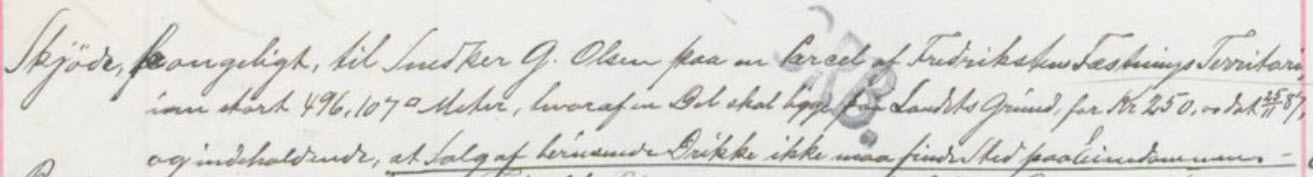 Skjöde, kongeligt, til Snedker G. Olsen paa en Parcel af Fredrikstens Fæstnings Territori
um stort 496,107 □ Meter, hvoraf en Del skal ligge paa Landets Grund, for Kr 250. dat 25/11 87,
og indeholdende, at Salg af berusende Drikke ikke maa finde Sted paa Eiendommen. –